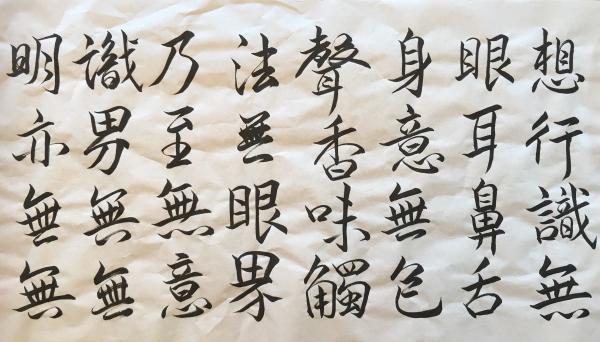 想行識無
眼耳鼻舌
身意無色
聲香味觸
法無眼界
乃至無意
識界無無
明亦無無